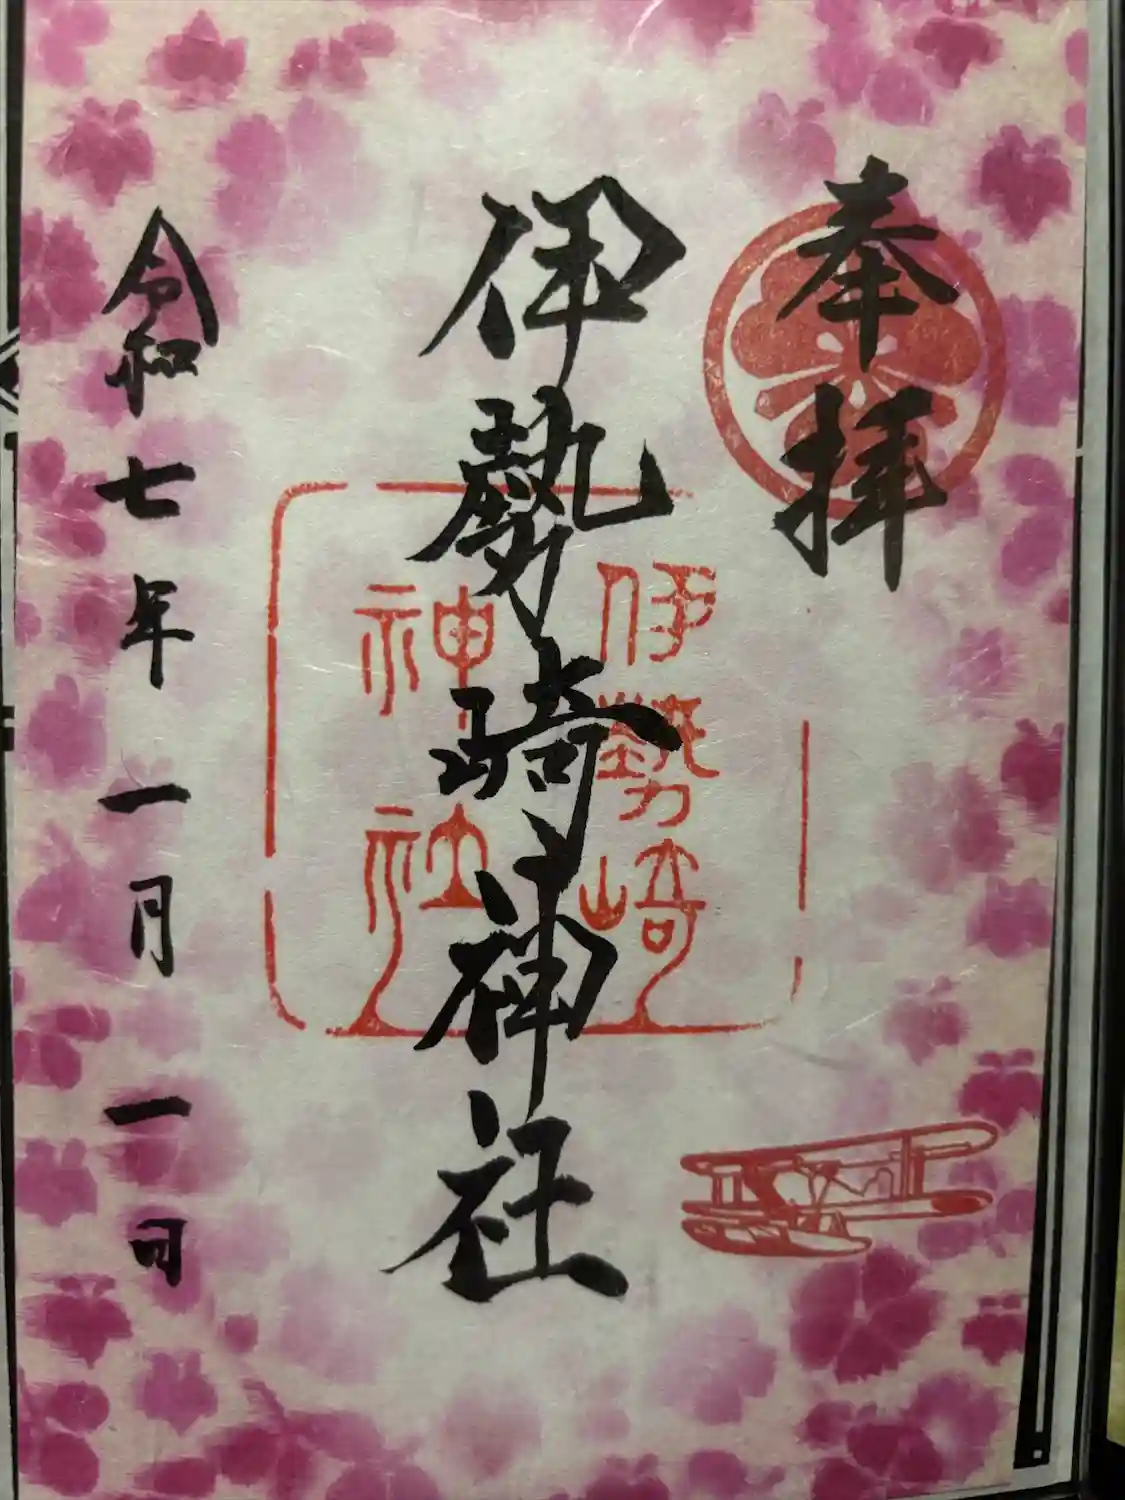 奉拝
伊勢崎神社
伊勢崎
神社
令和七年一月一日